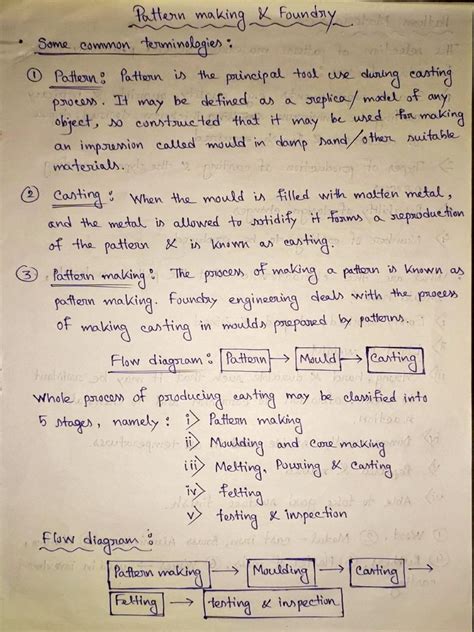 Pattern making & Foundry
• Some common terminologies :
① Pattern : Pattern is the principal tool use during casting
process. It may be defined as a replica/model of any
object, so constructed that it may be used for making
an impression called mould in damp sand/other suitable
materials.
② Casting : When the mould is filled with molten metal,
and the metal is allowed to solidify it forms a reproduction
of the pattern & is known as casting.
③ Pattern making : The process of making a pattern is known as
pattern making. Foundry engineering deals with the process
of making casting in moulds prepared by patterns.
Flow diagram : Pattern → Mould → Casting
Whole process of producing casting may be classified into
5 stages, namely : i> Pattern making
ii> Moulding and core making
iii> Melting, Pouring & casting
iv> felting
v> testing & inspection
Flow diagram :
Pattern making → Moulding → Casting →
Felting → testing & inspection